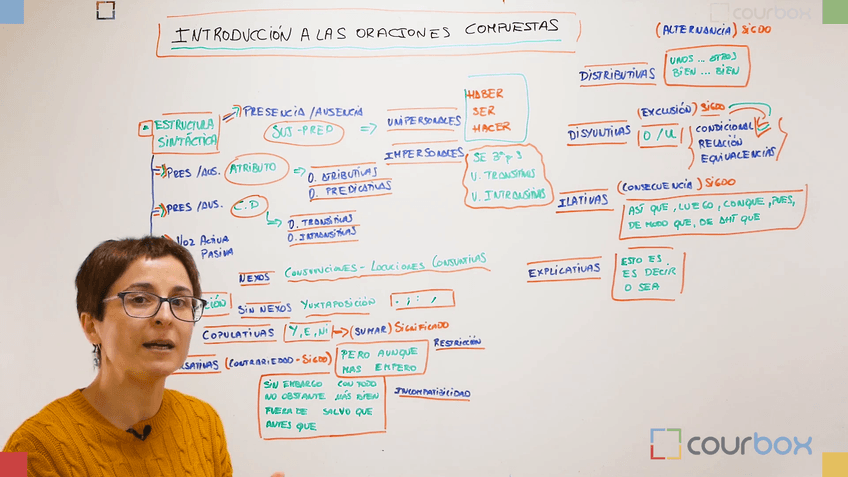 courbox
INTRODUCCIÓN A LAS ORACIONES COMPUESTAS
ESTRUCTURA
SINTÁCTICA
PRESENCIA / AUSENCIA
SUJ - PRED
UNIPERSONALES
HABER
SER
HACER
IMPERSONALES
SE 3ª p s
V. TRANSITIVAS
V. INTRANSITIVAS
PRES / AUS. ATRIBUTO
O. ATRIBUTIVAS
O. PREDICATIVAS
PRES / AUS. C.D
O. TRANSITIVAS
O. INTRANSITIVAS
VOZ ACTIVA
PASIVA
NEXOS CONJUNCIONES - LOCUCIONES CONJUNTIVAS
CIÓN
SIN NEXOS YUXTAPOSICIÓN . ; : ,
COPULATIVAS Y, E, NI (SUMAR) SIGNIFICADO
SATIVAS (CONTRARIEDAD - SIGDO)
PERO AUNQUE
MAS EMPERO
RESTRICCIÓN
SIN EMBARGO CON TODO
NO OBSTANTE MÁS BIEN
FUERA DE SALVO QUE
ANTES QUE
INCOMPATIBILIDAD
(ALTERNANCIA) SIGDO
DISTRIBUTIVAS
UNOS ... OTROS
BIEN ... BIEN
(EXCLUSIÓN) SIGDO
DISYUNTIVAS
O / U
CONDICIONAL
RELACIÓN
EQUIVALENCIAS
(CONSECUENCIA) SIGDO
ILATIVAS
ASÍ QUE, LUEGO, CONQUE, PUES,
DE MODO QUE, DE AHÍ QUE
EXPLICATIVAS
ESTO ES
ES DECIR
O SEA
courbox